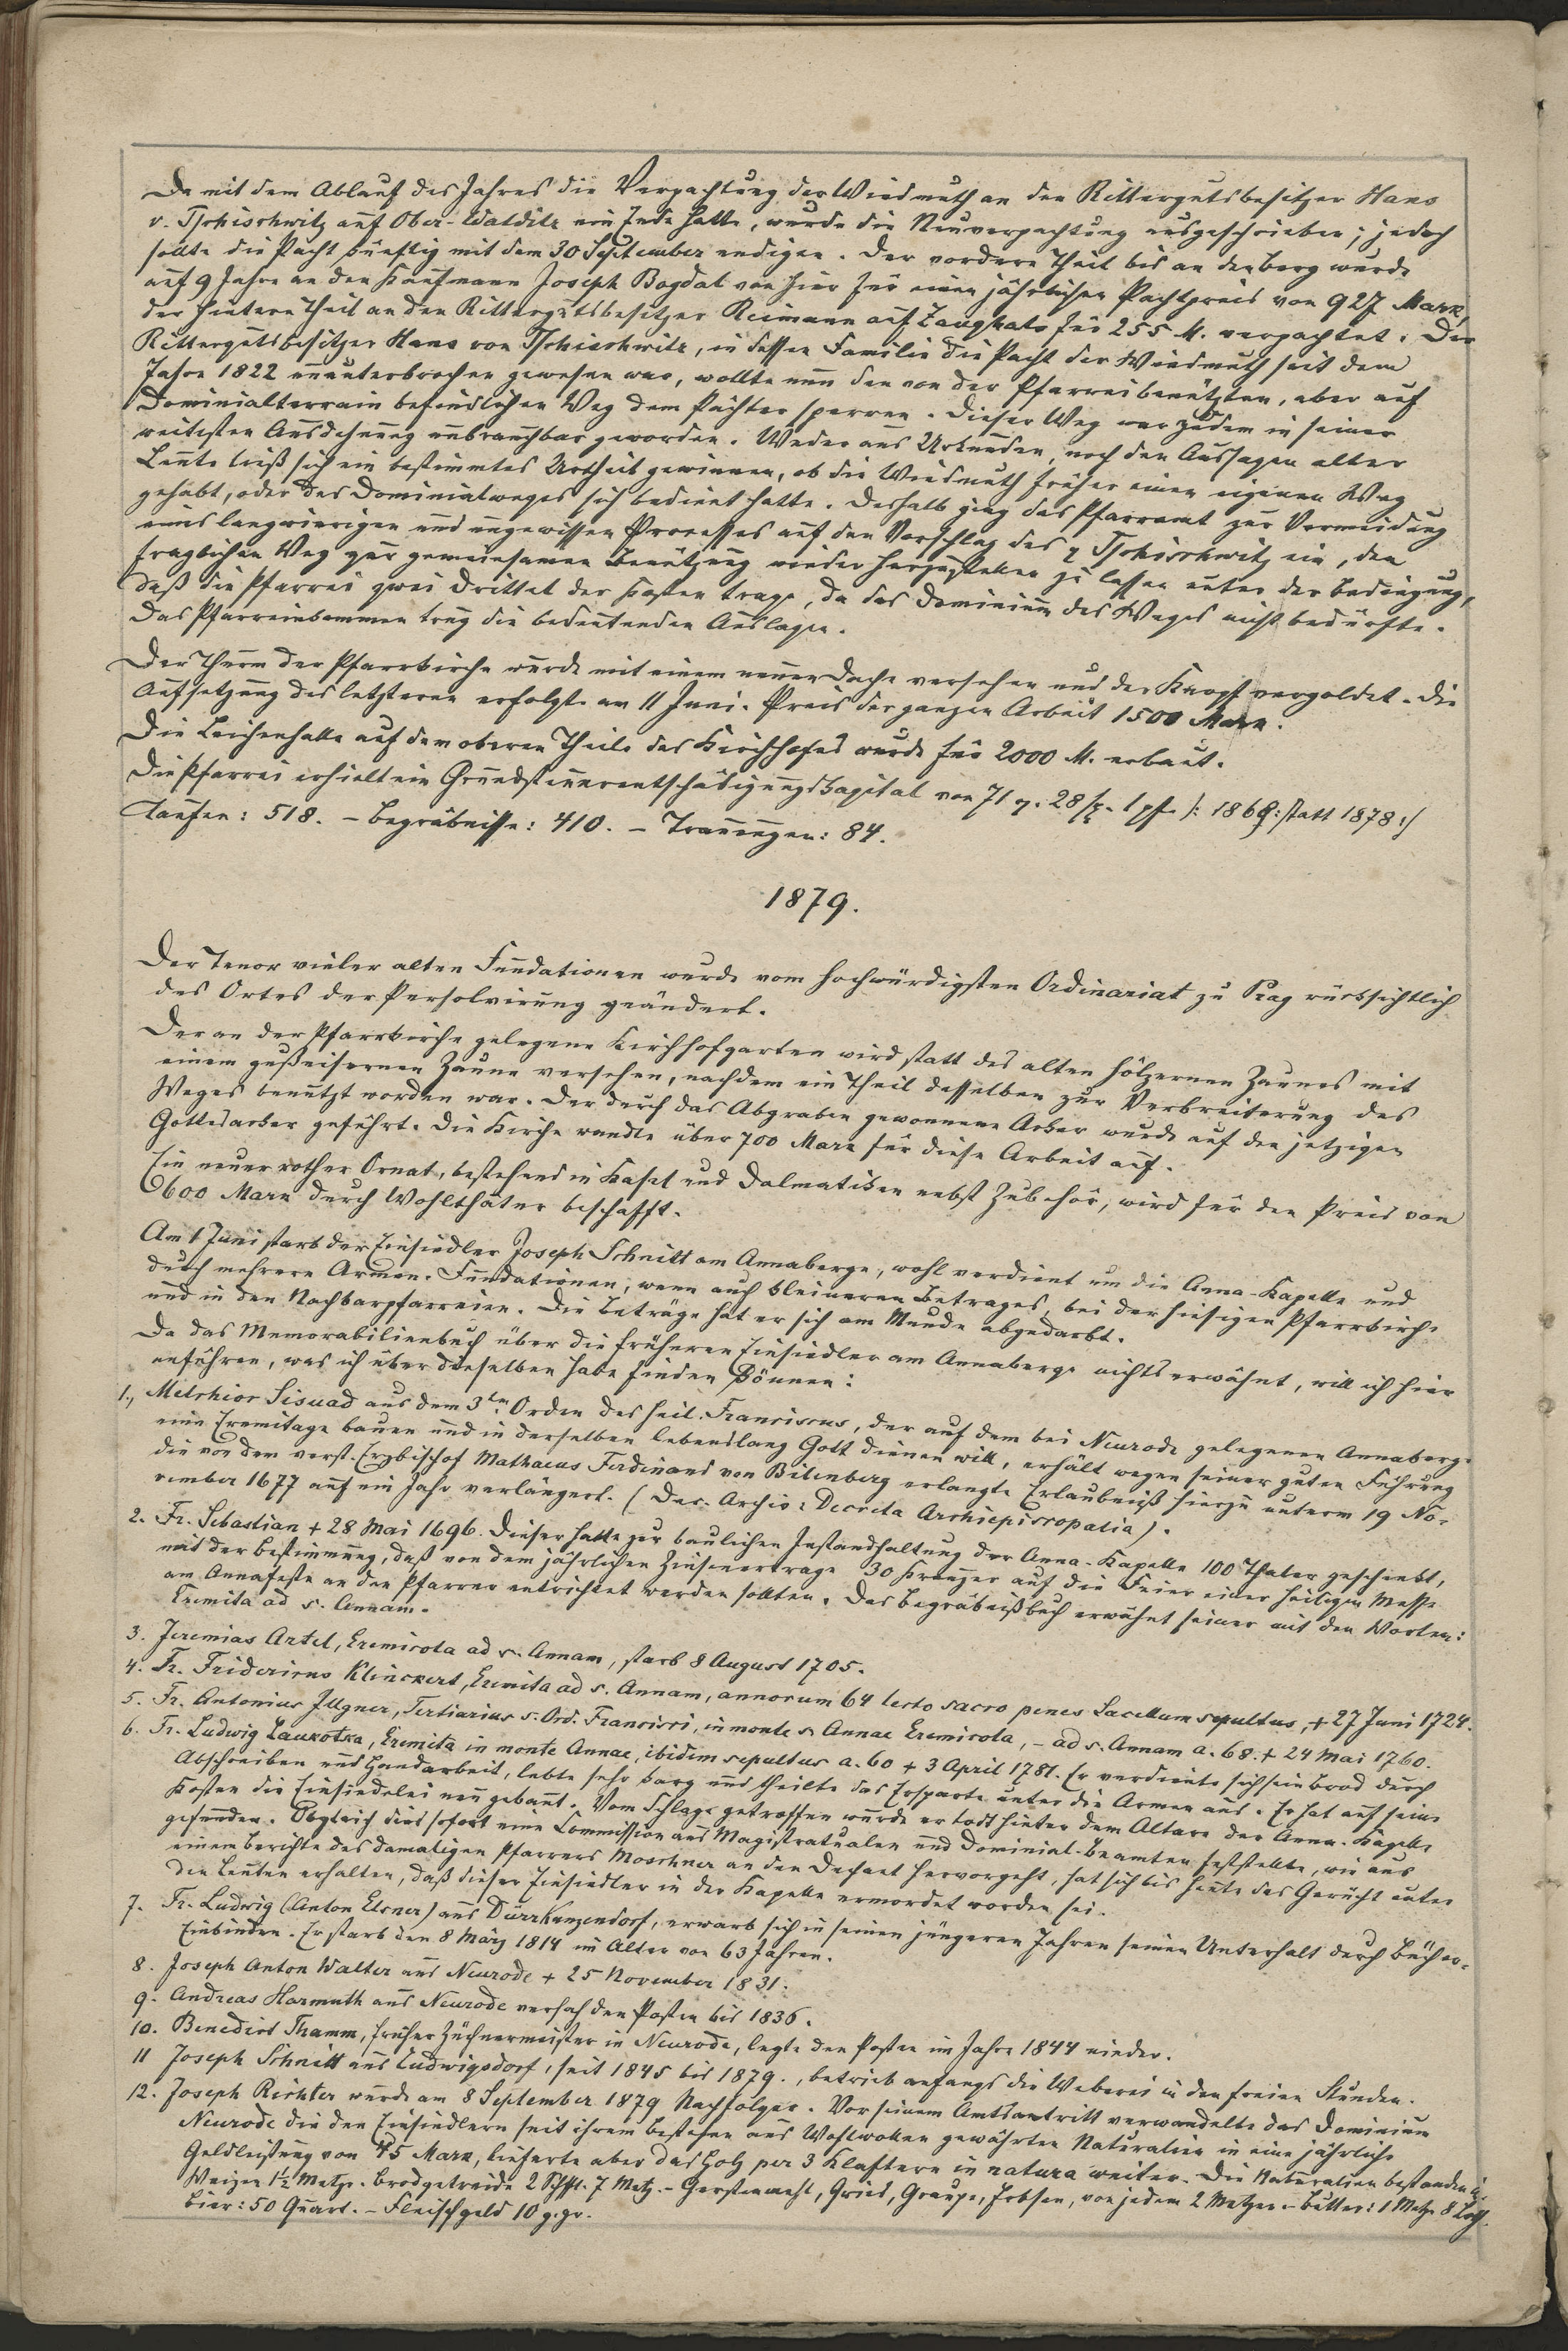 Da mit dem Ablauf des Jahres die Verpachtung der Wiedmuth an den Rittergutsbesitzer Hans
v. Tschischwitz auf Ober-Walditz ein Ende hatte, wurde die Neuverpachtung ausgeschrieben; jedoch
sollte die Pacht künftig mit dem 30 September endigen. Der vordere Theil bis an den Berg wurde
auf 9 Jahre an den Kaufmann Joseph Bogdal von hier für einen jährlichen Pachtpreis von 927 Mark,
der hintere Theil an den Rittergutsbesitzer Reimann auf Zaughals für 255 M. verpachtet. Der
Rittergutsbesitzer Hans von Tschischwitz, in dessen Familie die Pacht der Wiedmuth seit dem
Jahre 1822 ununterbrochen gewesen war, wollte nun den von der Pfarrei benützten, aber auf
Dominialterrain befindlichen Weg dem Pächter sperren. Dieser Weg war zudem in seiner
weitesten Ausdehnung unbrauchbar geworden. Weder aus Urkunden, noch den Aussagen alter
Leute ließ sich ein bestimmtes Urtheil gewinnen, ob die Wiedmuth früher einen eigenen Weg
gehabt, oder des Dominialweges sich bedient hatte. Deshalb ging das Pfarramt zur Vermeidung
eines langwierigen und ungewissen Processes auf den Vorschlag des v Tschischwitz ein, den
fraglichen Weg zur gemeinsamen Benützung wieder herzustellen zu lassen unter der Bedingung,
daß die Pfarrei zwei Drittel der Kosten trage, da das Dominium des Weges nicht bedürfte.
Das Pfarreinkommen trug die bedeutenden Auslagen.
Der Thurm der Pfarrkirche wurde mit einem neuen Dache versehen und der Knopf vergoldet. Die
Aufsetzung des letzteren erfolgte am 11 Juni. Preis der ganzen Arbeit 1500 Mark.
Die Leichenhalle auf dem oberen Theile des Kirchhofes wurde für 2000 M. erbaut.
Die Pfarrei erhielt ein Grundsteuerentschädigungskapital von 71 r. 28 sg. 1 pf. /: 1869 statt 1878 :/
Taufen: 518. – Begräbnisse: 410. – Trauungen: 84.
1879.
Der Tenor vieler alten Fundationen wurde vom hochwürdigsten Ordinariat zu Prag rücksichtlich
des Ortes der Persolvirung geändert.
Der an der Pfarrkirche gelegene Kirchhofgarten wird statt des alten hölzernen Zaunes mit
einem gußeisernen Zaune versehen, nachdem ein Theil desselben zur Verbreiterung des
Weges benutzt worden war. Der durch das Abgraben gewonnene Acker wurde auf den jetzigen
Gottesacker geführt. Die Kirche wandte über 700 Mark für diese Arbeit auf.
Ein neuer rother Ornat, bestehend in Kasel und Dalmatiken nebst Zubehör, wird für den Preis von
600 Mark durch Wohlthäter beschafft.
Am 1 Juni starb der Einsiedler Joseph Schnitt am Annaberge, wohl verdient um die Anna-Kapelle und
durch mehrere Armen-Fundationen, wenn auch kleineren Betrages, bei der hiesigen Pfarrkirche
und in den Nachbarpfarreien. Die Beträge hat er sich am Munde abgedarbt.
Da das Memorabilienbuch über die früheren Einsiedler am Annaberge nichts erwähnt, will ich hier
anführen, was ich über dieselben habe finden können:
1., Melchior Siswad aus dem 3ten Orden des heil. Franciscus, der auf dem bei Neurode gelegenen Annaberge
eine Eremitage bauen und in derselben lebenslang Gott dienen will, erhält wegen seiner guten Führung
die von dem verst. Erzbischof Mathaeus Ferdinand von Bilenberg erlangte Erlaubniß hierzu unterm 19 No-
vember 1677 auf ein Jahr verlängert. (Dec. Archiv: Decreta Archiepiscopalia).
2. Fr. Sebastian + 28 Mai 1696. Dieser hatte zur baulichen Instandhaltung der Anna-Kapelle 100 Thaler geschenkt,
mit der Bestimmung, daß von dem jährlichen Zinsenertrage 30 Kreuzer auf die Feier einer heiligen Messe
am Annafeste an den Pfarrer entrichtet werden sollten. Das Begräbnißbuch erwähnt seiner mit den Worten:
Eremita ad s. Annam.
3. Jeremias Artel, Eremicola ad s. Annam, starb 8 August 1705.
4. Fr. Fridericus Klinckert, Eremita ad s. Annam, annorum 64 lecto sacro penes Sacellum sepultus, + 27 Juni 1724.
5. Fr. Antonius Illgner, Tertiarius s. Ord. Francisci, in monte s Annae Eremicola, – ad s. Annam a. 68. + 24 Mai 1760.
6. Fr. Ludwig Laukotka, Eremita in monte Annae, ibidem sepultus a. 60 + 3 April 1781. Er verdiente sich sein Brod durch
Abschreiben und Handarbeit, lebte sehr karg und theilte das Ersparte unter die Armen aus. Er hat auf seine
Kosten die Einsiedelei neu gebaut. Vom Schlage getroffen wurde er todt hinter dem Altare der Anna-Kapelle
gefunden. Obgleich dies sofort eine Commission aus Magistratualen und Dominial-Beamten feststellte, wie aus
einem Berichte des damaligen Pfarrers Moschner an den Dechant hervorgeht, hat sich bis heute das Gerücht unter
den Leuten erhalten, daß dieser Einsiedler in der Kapelle ermordet worden sei.
7. Fr. Ludwig (Anton Elsner) aus Dürrkunzendorf, erwarb sich in seinen jüngeren Jahren seinen Unterhalt durch Bücher-
Einbinden. Er starb den 8 März 1814 im Alter von 63 Jahren.
8. Joseph Anton Walter aus Neurode + 25 November 1831.
9. Andreas Harmuth aus Neurode versah den Posten bis 1836.
10. Benedict Thamm, früher Züchnermeister in Neurode, legte den Posten im Jahre 1844 nieder.
11 Joseph Schnitt aus Ludwigsdorf, seit 1845 bis 1879., betrieb anfangs die Weberei in den freien Stunden.
12. Joseph Richter wurde am 8 September 1879 Nachfolger. Vor seinem Amtsantritt verwandelte das Dominium
Neurode die den Einsiedlern seit ihrem Bestehen aus Wohlwollen gewährten Naturalien in eine jährliche
Geldleistung von 45 Mark, lieferte aber das Holz per 3 Klaftern in natura weiter. Die Naturalien bestanden in:
Weizen 1½ Metze. Brodgetreide 2 Schffl. 7 Metz. – Gerstenmehl, Gries, Graupe, Erbsen, von jedem 2 Metzen – Butter: 1 Metze 8 Loth.
Bier: 50 Quart. – Fleischgeld 10 g. gr.